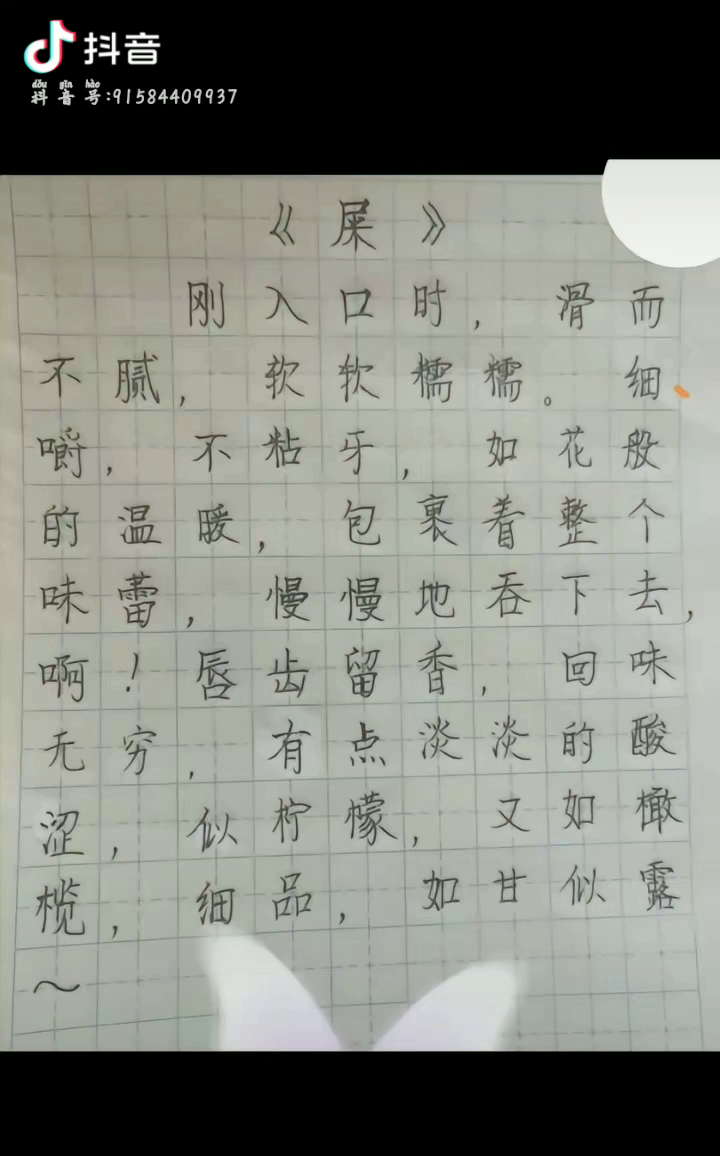 抖音
dǒu yīn hào
抖音号:91584409937
《屎》
刚入口时，滑而
不腻，软软糯糯。细
嚼，不粘牙，如花般
的温暖，包裹着整个
味蕾，慢慢地吞下去，
啊！唇齿留香，回味
无穷，有点淡淡的酸
涩，似柠檬，又如橄
榄，细品，如甘似露
～